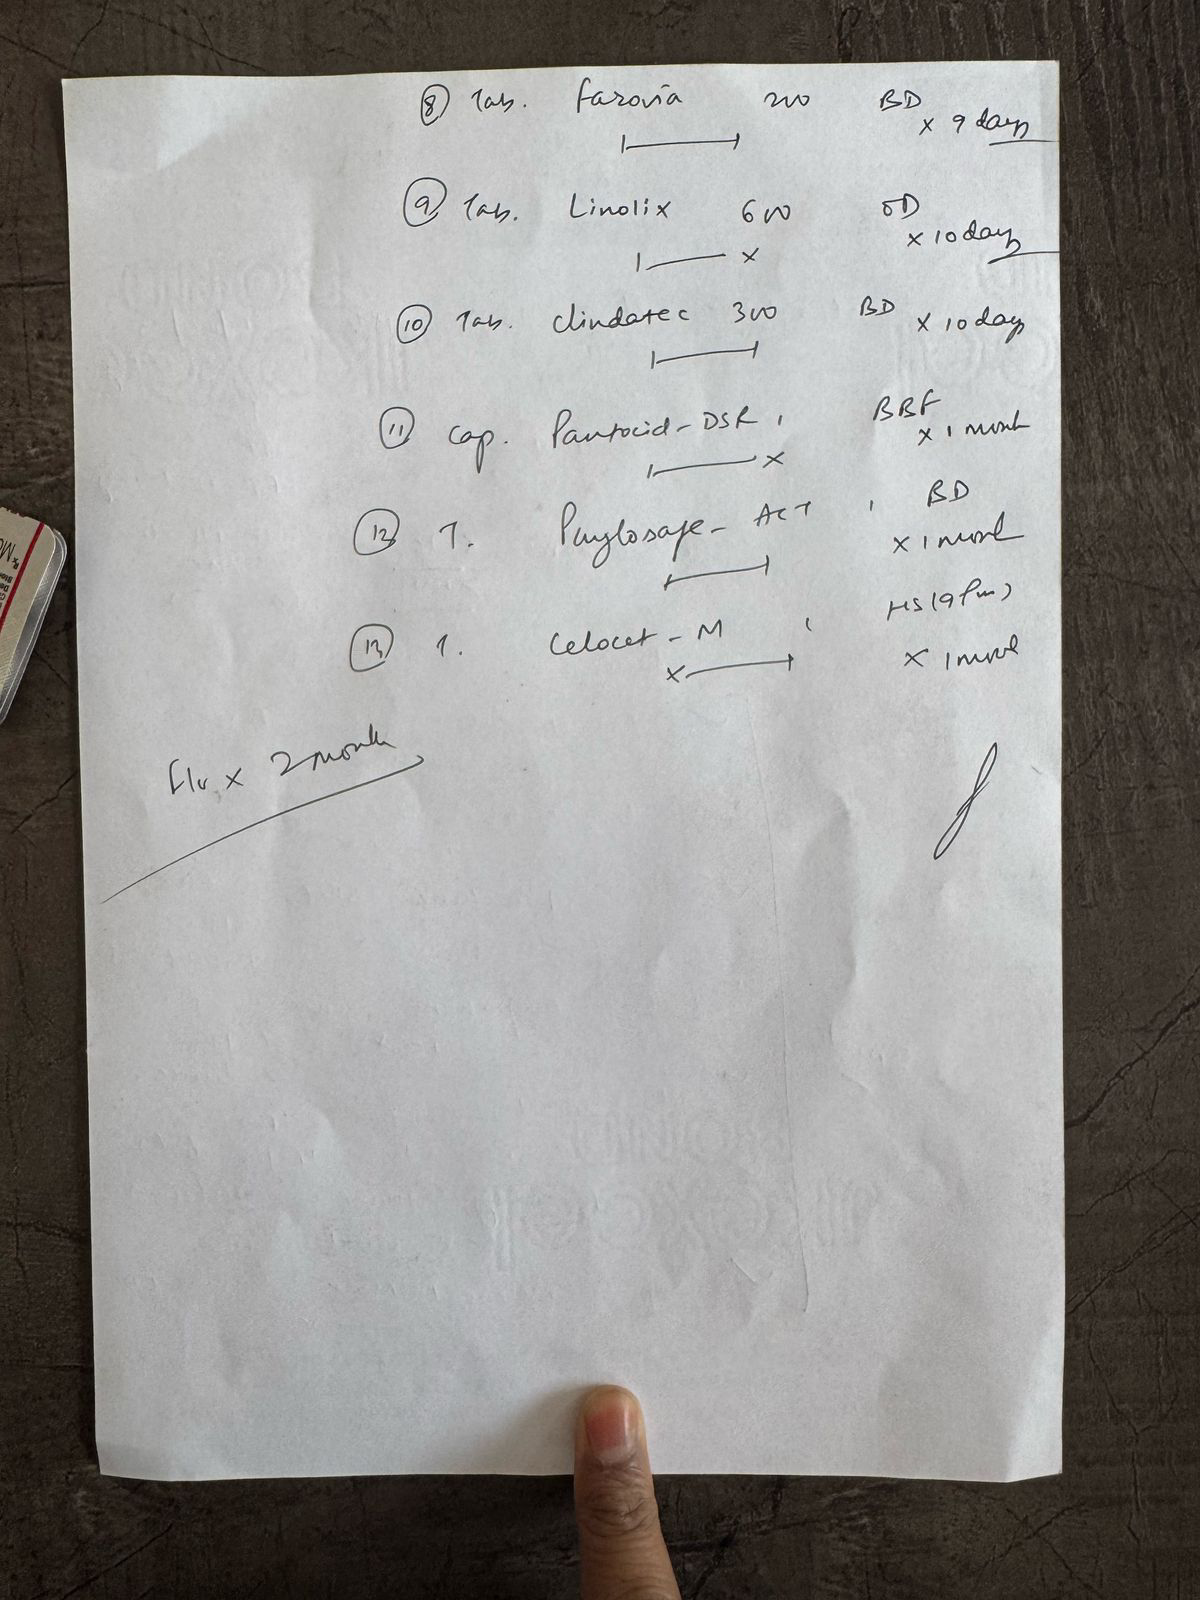 ⑧ Tab. Farovia 200 BD x 9 days
⑨ Tab. Linolix 600 OD x 10 days
x
⑩ Tab. Clindatec 300 BD x 10 days
⑪ Cap. Pantocid-DSR 1 BBF x 1 month
x
⑫ T. ACT 1 BD x 1 month
⑬ T. - M 1 HS (9 pm) x 1 month
x
F/u x 2 month